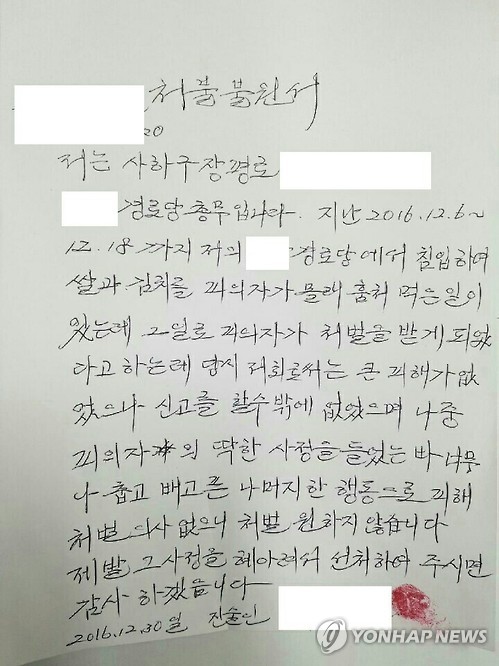 처불불원서
20
저는 사하구 장평로
경로당 총무입니다. 지난 2016.12.6~
12.18 까지 저의 경로당에서 침입하여
쌀과 김치를 피의자가 몰래 훔쳐 먹은일이
있는데 그일로 피의자가 처벌을 받게 되었
다고 하는데 당시 저희로써는 큰 피해가 없
었으나 신고를 할수 밖에 없었으며 나중
피의자의 딱한 사정을 들었는 바 너무
나 춥고 배고픈 나머지 한 행동으로 피해
처벌 의사 없으니 처벌 원하지 않습니다
제발 그 사정을 헤아려서 선처하여 주시면
감사 하겠습니다
2016.12.30일 진술인
YONHAP NEWS